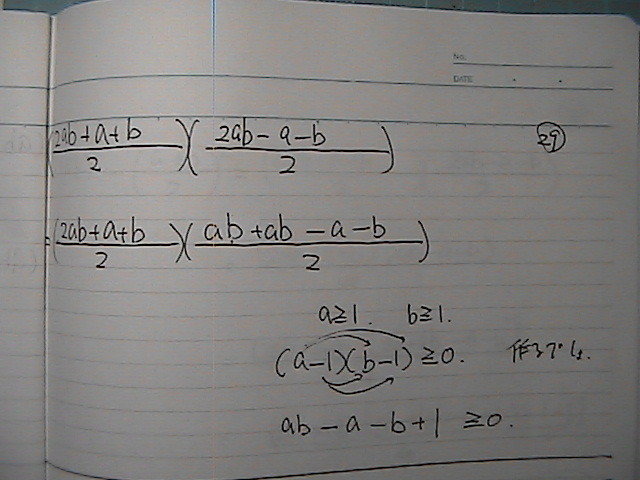 No.
DATE
(2ab+a+b/2)(2ab-a-b/2) ㉙
=(2ab+a+b/2)(ab+ab-a-b/2)
a≧1. b≧1.
(a-1)(b-1)≧0.
ab-a-b+1≧0.